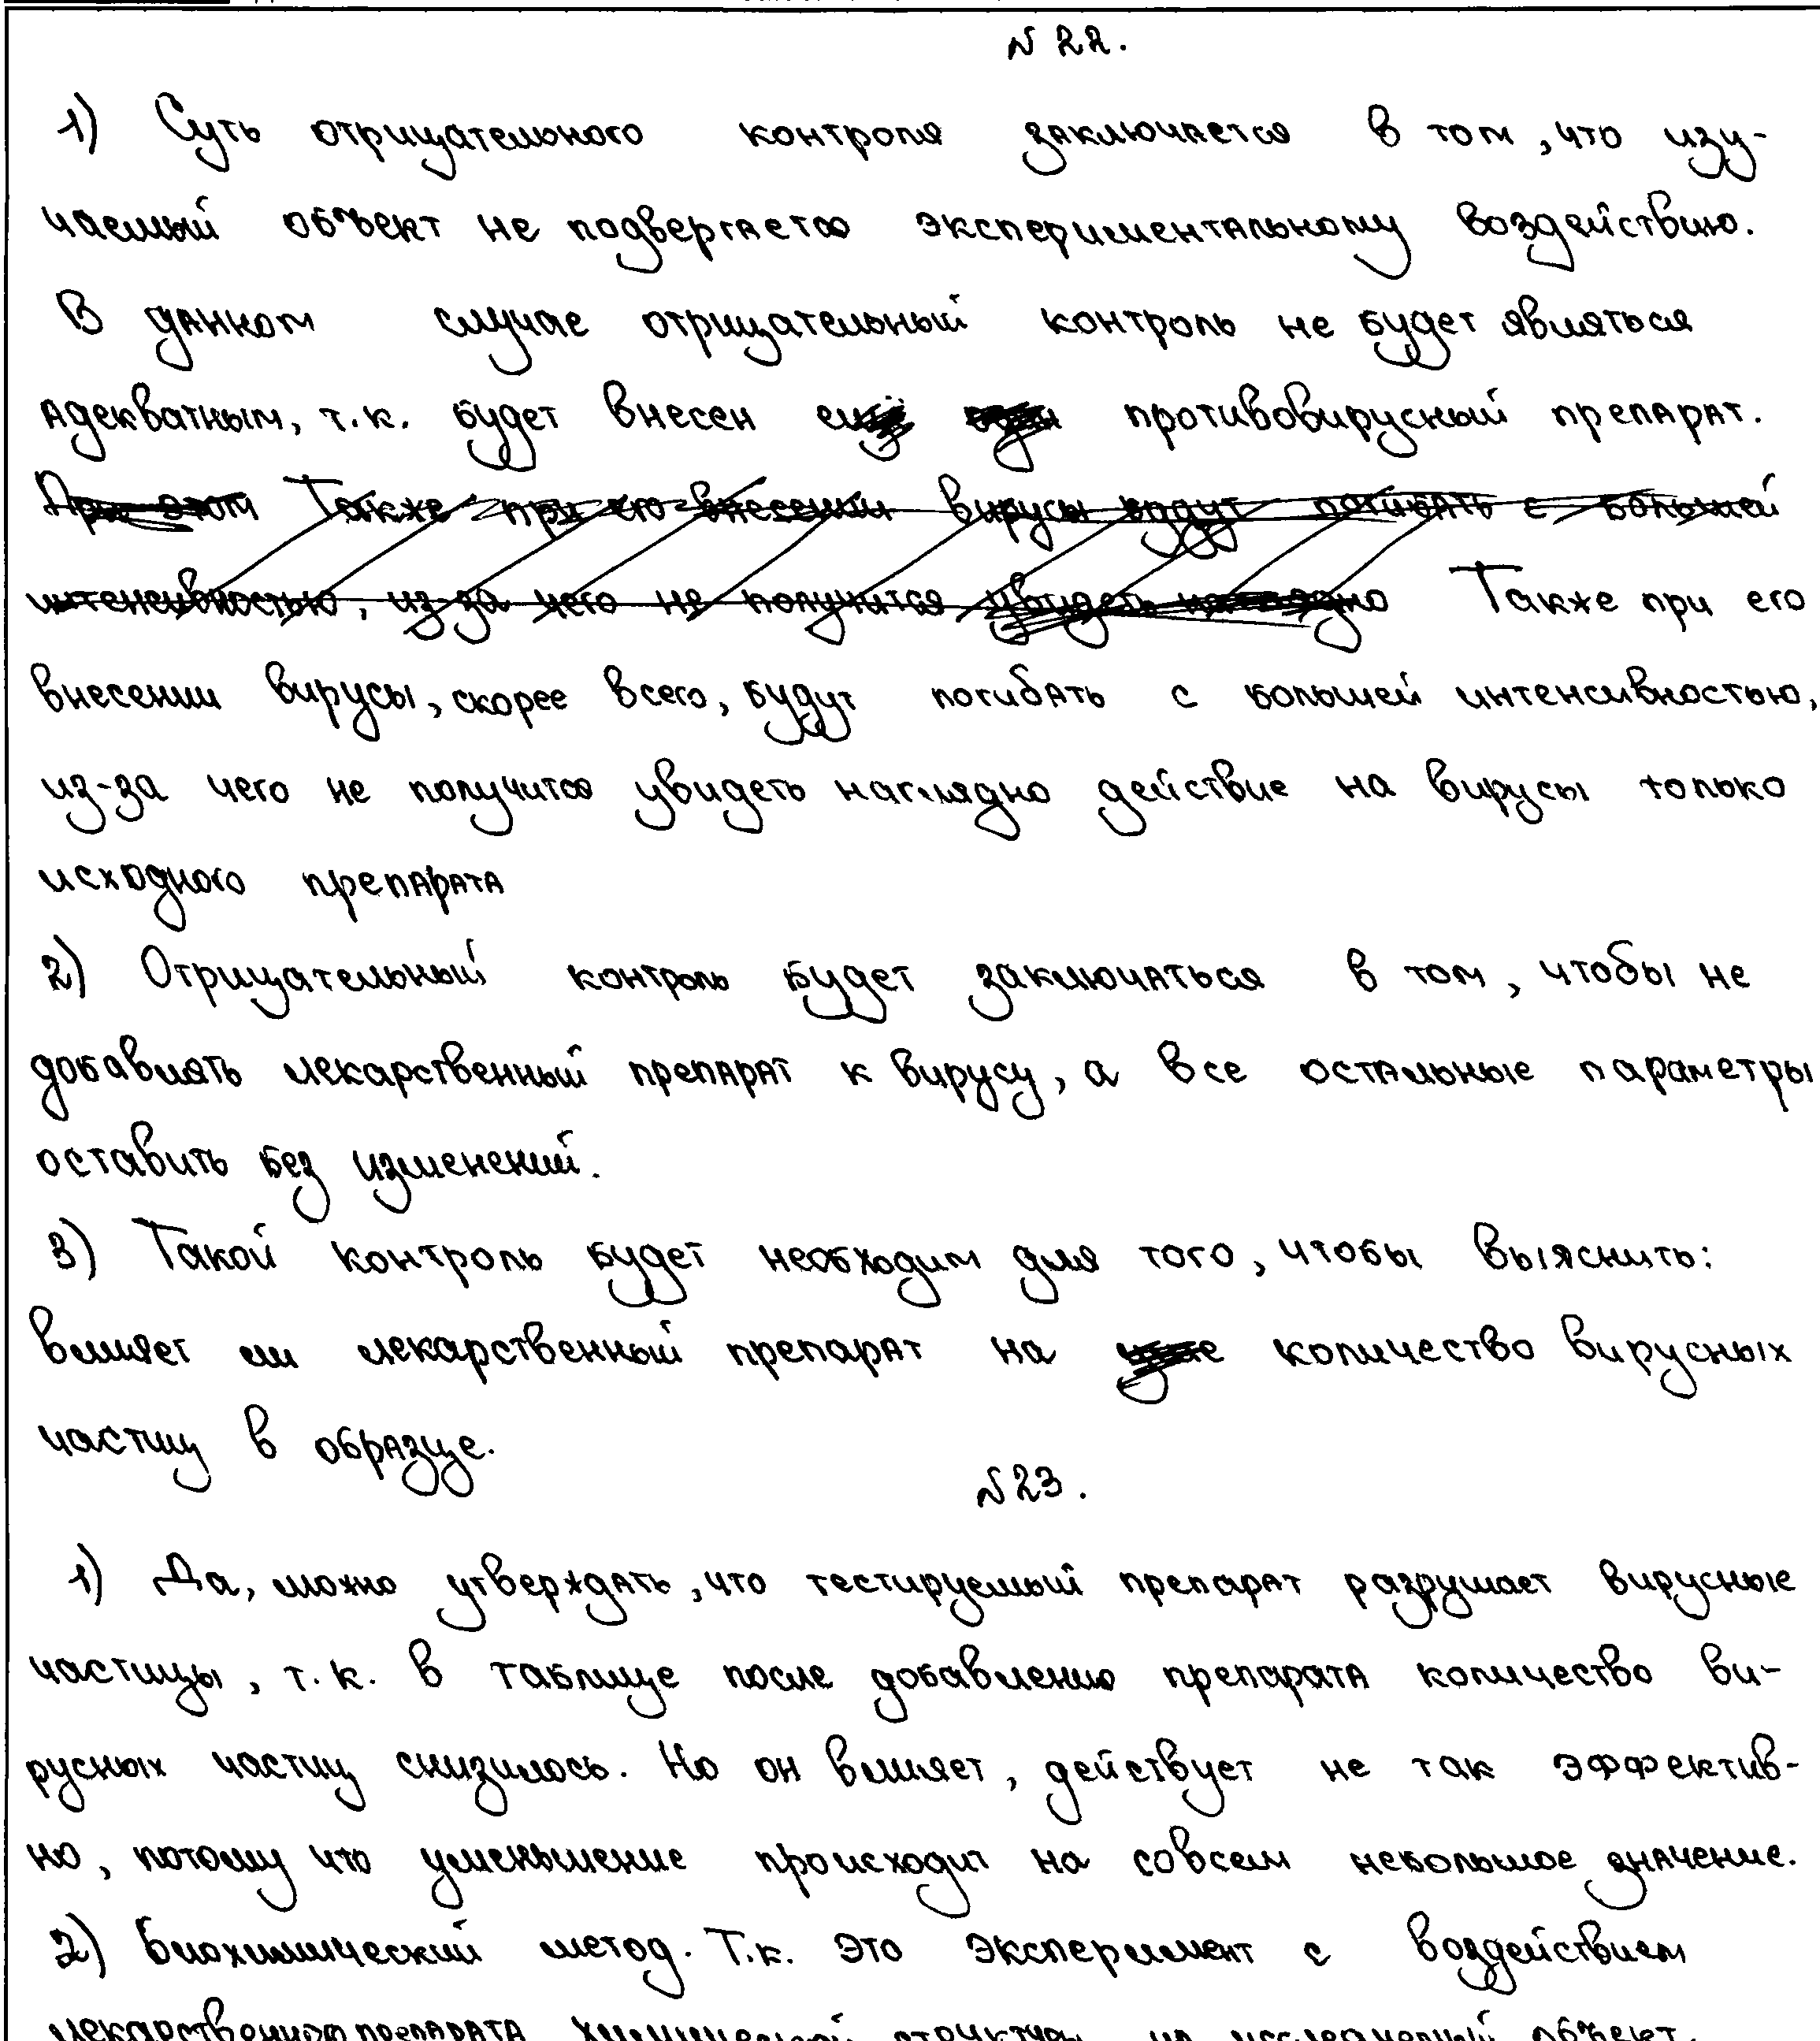 N 22.
1) Суть отрицательного контроля заключается в том, что изу-
чаемый объект не подвергается экспериментальному воздействию.
В данном случае отрицательный контроль не будет являться
адекватным, т.к. будет внесен противовирусный препарат.
Также при его внесении вирусы будут погибать с большей
интенсивностью, из-за чего не получится увидеть наглядно Также при его
внесении вирусы, скорее всего, будут погибать с большей интенсивностью,
из-за чего не получится увидеть наглядно действие на вирусы только
исходного препарата
2) Отрицательный контроль будет заключаться в том, чтобы не
добавлять лекарственный препарат к вирусу, а все остальные параметры
оставить без изменений.
3) Такой контроль будет необходим для того, чтобы выяснить:
влияет ли лекарственный препарат на количество вирусных
частиц в образце.
N 23.
1) Да, можно утверждать, что тестируемый препарат разрушает вирусные
частицы, т.к. в таблице после добавлению препарата количество ви-
русных частиц снизилось. Но он влияет, действует не так эффектив-
но, потому что уменьшение происходит на совсем небольшое значение.
2) Биохимический метод. Т.к. это эксперимент с воздействием
лекарственного препарата химической структуры на исследуемый объект.